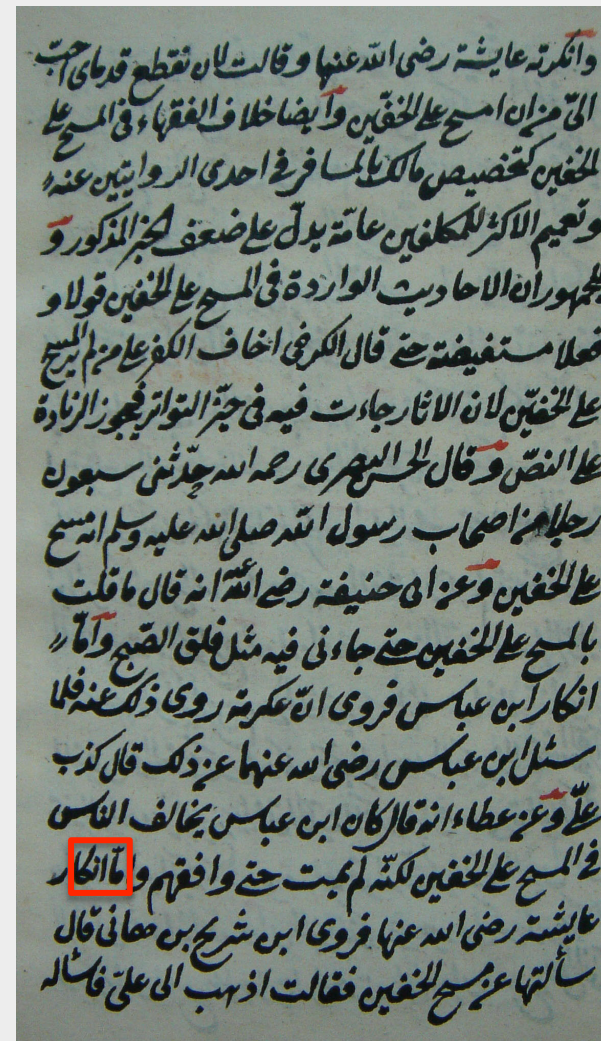 وانكرته عايشة رضى الله عنها وقالت لان تقطع قدماى احبّ
الىّ من ان امسح على الخفّين وايضا خلاف الفقهاء فى المسح على
الخفين كتخصيص مالك بالمسافر فى احدى الروايتين عنه
وتعميم الاكثر للمكلفين عامّة يدلّ على ضعف الخبر المذكور و
للجمهور ان الاحاديث الواردة فى المسح على الخفين قولا و
فعلا مستفيضة حتے قال الكرخى اخاف الكفر على من لم ير المسح
على الخفّين لان الاثار جاءت فيه فى حيّز التواتر فيجوز الزيادة
على النصّ وقال الحسن البصرى رحمه الله حدّثنى سبعون
رجلا من اصحاب رسول الله صلى الله عليه وسلم انه مسح
على الخفين وعن ابى حنيفة رضے الله عنه انه قال ما قلت
بالمسح على الخفين حتے جاءنى فيه مثل فلق الصّبح وامّا
انكار ابن عباس فروى انّ عكرمة روى ذلك عنه فلما
سئل ابن عباس رضى الله عنهما عن ذلك قال كذب
علىّ وعن عطاء انه قال كان ابن عباس يخالف الناس
فى المسح على الخفين لكنّه لم يمت حتے وافقهم وامّا انكار
عايشة رضى الله عنها فروى ابن شريح بن هانى قال
سألتها عن مسح الخفين فقالت اذهب الى علىّ فاسئاله